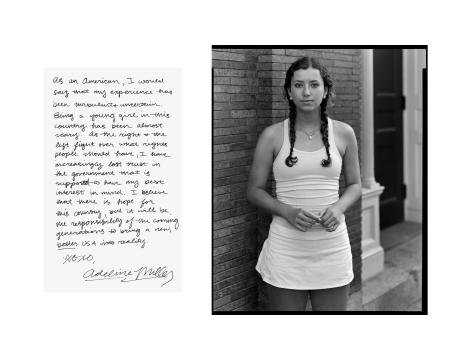 As an American, I would
say that my experience has
been turbulent & uncertain.
Being a young girl in this
country has been almost
scary. As the right & the
left fight over what rights
people should have, I have
increasingly lost trust in
the government that is
supposed to have my best
interest in mind. I believe
that there is hope for
this country, but it will be
the responsibility of the coming
generations to bring a new,
better USA into reality.
XOXO,
Adeline Miller